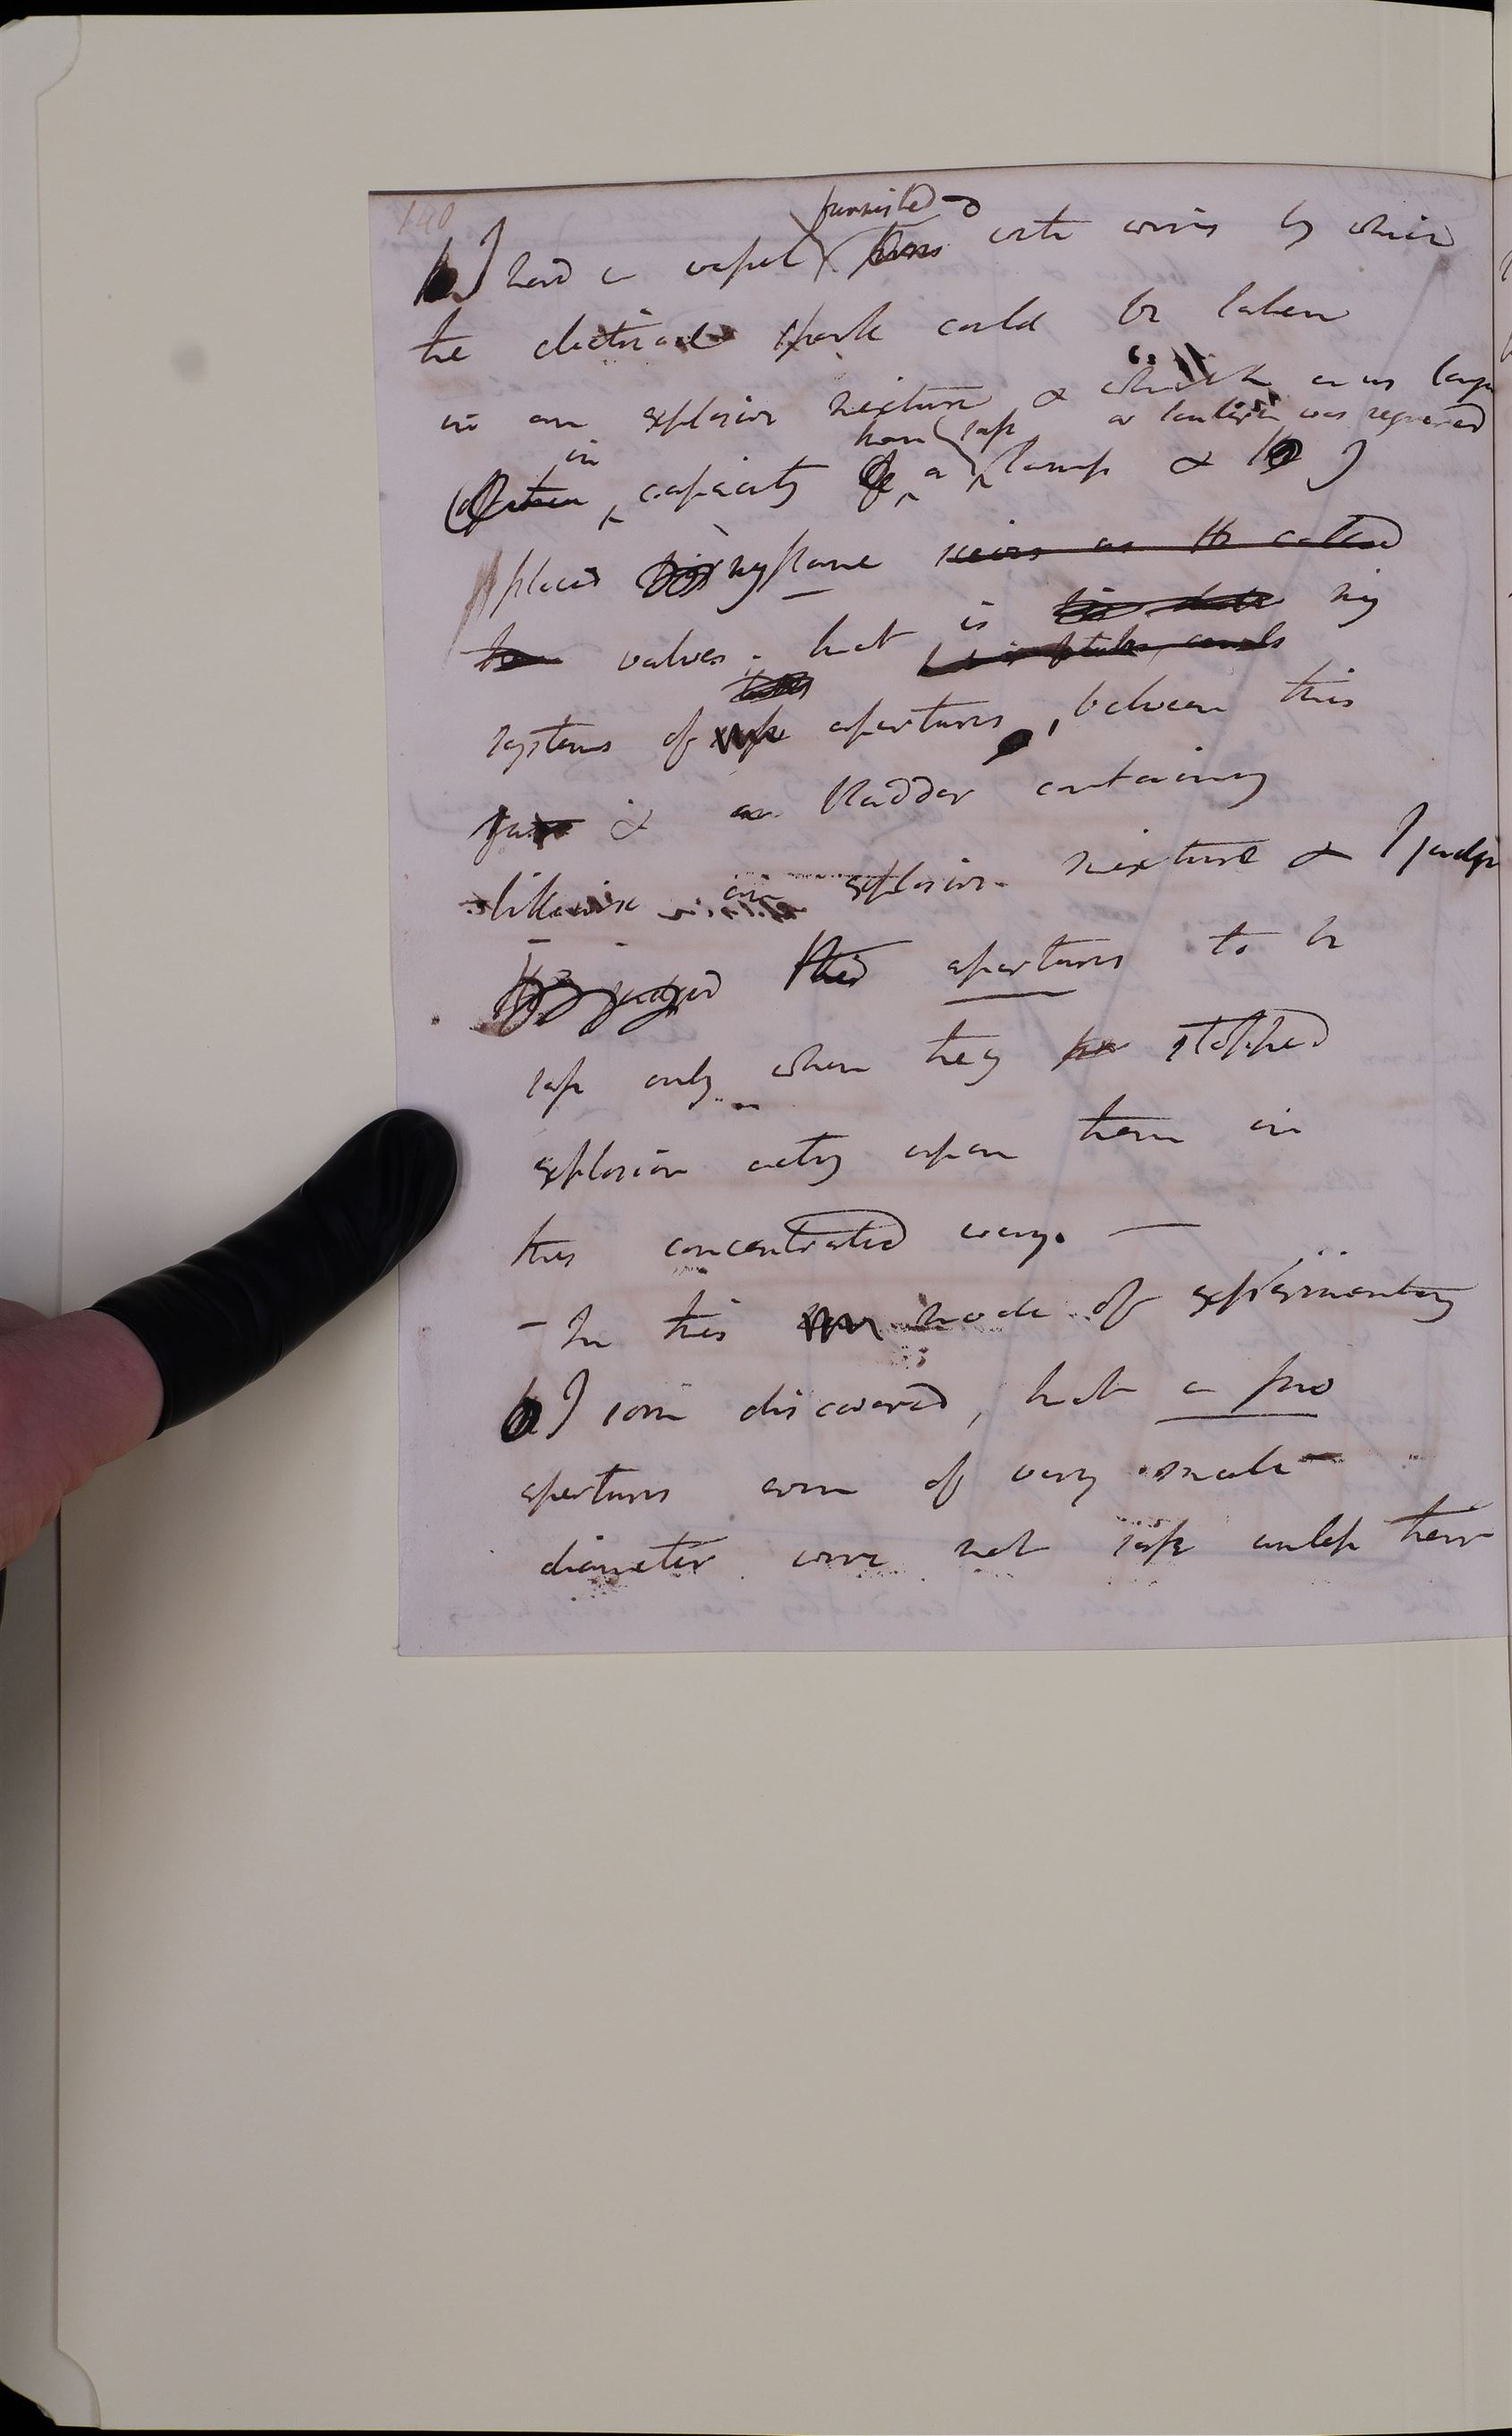 140
furnished
I had a vessel with wires by which
the electrical spark could be taken
in an explosive mixture & which was larger
in than safe or lantern was required
capacity a lamp & )
placed my flame
valves. that is my
systems of apertures, between this
& a bladder containing
likewise an explosive mixture & I judged
judged this apertures to be
safe only when they stopped
explosion acting upon them in
this concentrated way. —
– In this mode of experimenting
I soon discovered, that a few
apertures even of very small
diameter were not safe unless their